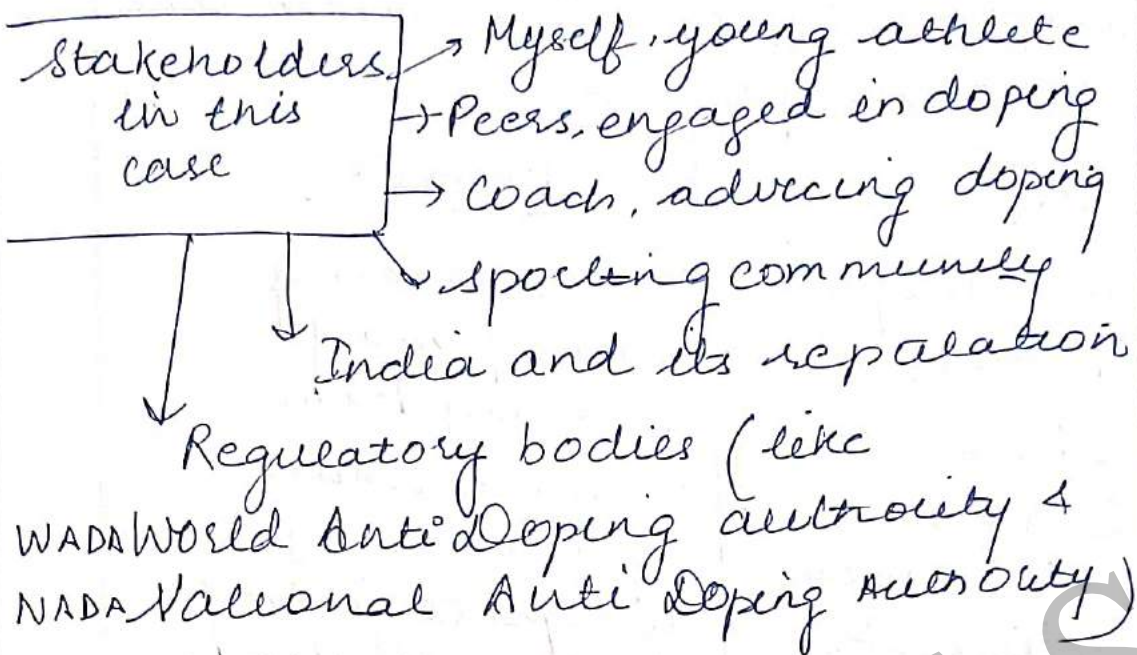 Stakeholders in this case
Myself, young athlete
Peers, engaged in doping
Coach, advicing doping
sporting community
India and its repalation
Regulatory bodies (like
WADA World Anti Doping authority &
NADA National Anti Doping Authority)